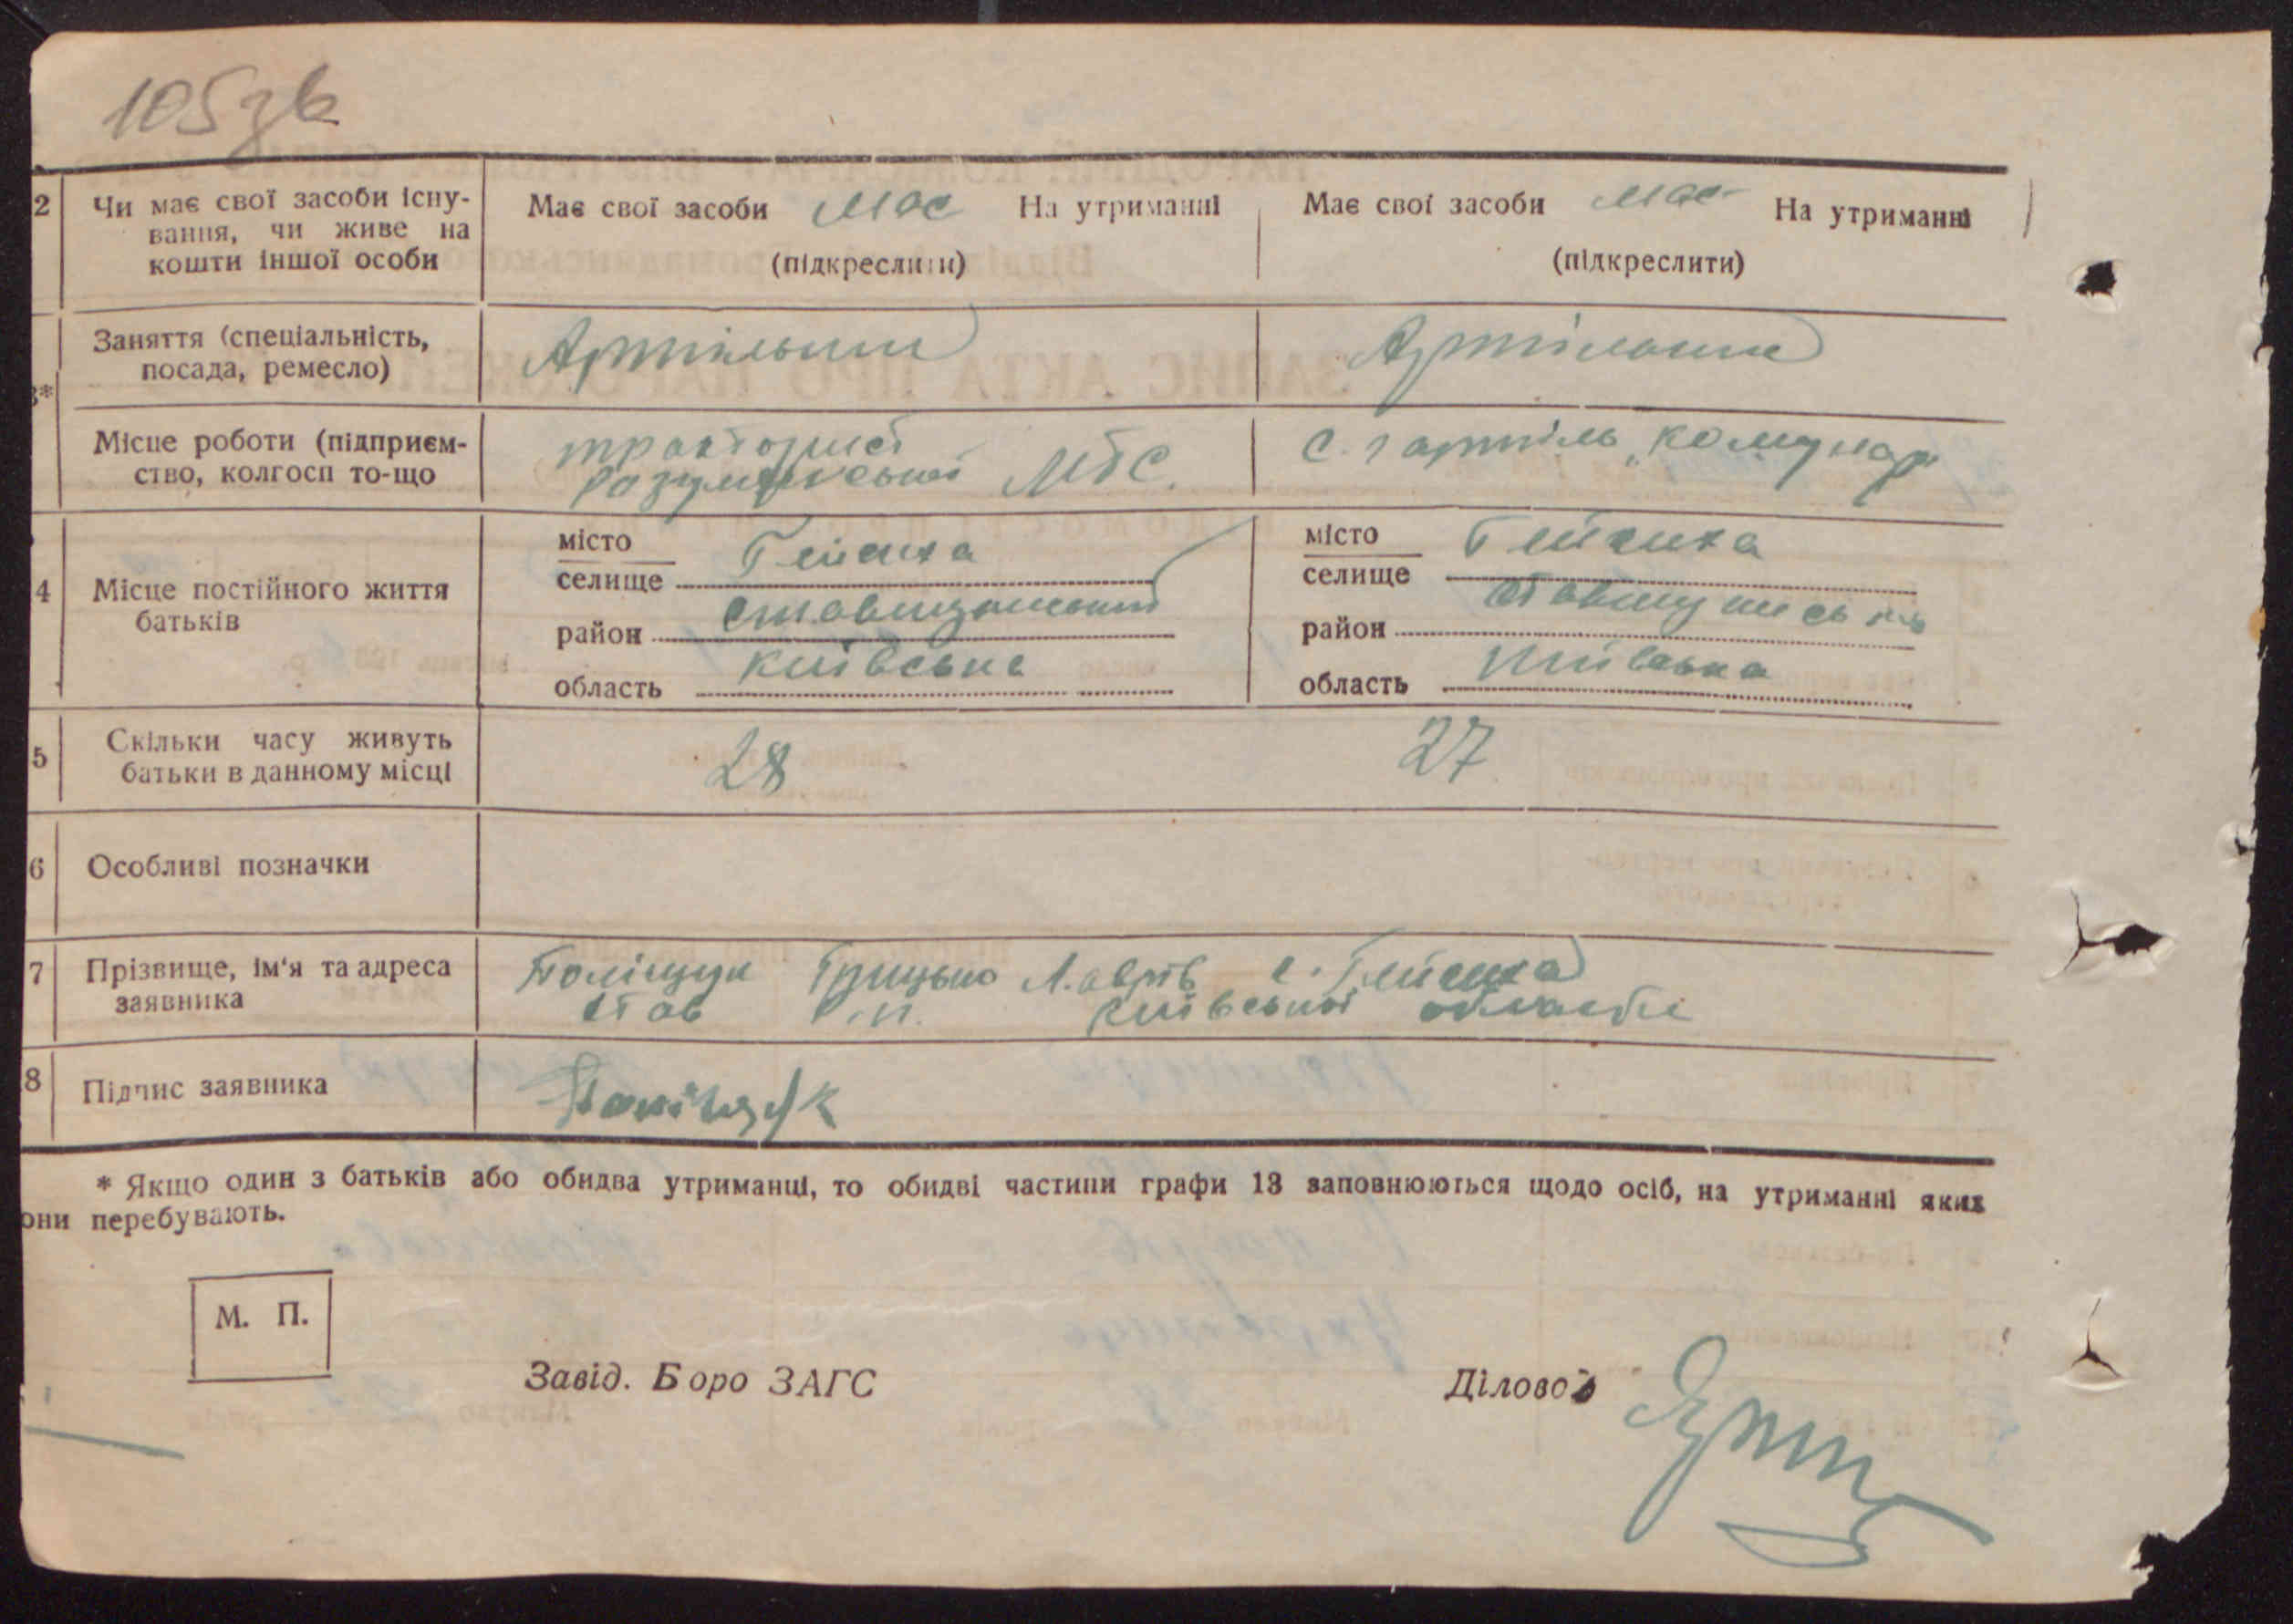 105 зв
2 Чи має свої засоби існу- Має свої засоби має На утриманні Має свої засоби має На утриманні
вання, чи живе на
кошти іншої особи (підкреслити) (підкреслити)
Заняття (спеціальність, Артільник Артільниця
посада, ремесло)
3*
Місце роботи (підприєм- тракторист с. г артіль „комунар"
ство, колгосп то-що МТС.
місто Гейсиха місто Гейсиха
селище селище
4 Місце постійного життя район Ставищанський район Ставищанськ
батьків область київська область київська
5 Скільки часу живуть 28 27
батьки в данному місці
6 Особливі позначки
7 Прізвище, ім'я та адреса Поліщук Грицько Лаврів с. Гейсиха
заявника Став р.н. київської області
8 Підпис заявника Поліщук
* Якщо один з батьків або обидва утриманці, то обидві частини графи 13 заповнюються щодо осіб, на утриманні яких
они перебувають.
М. П.
Завід. Боро ЗАГС Діловод